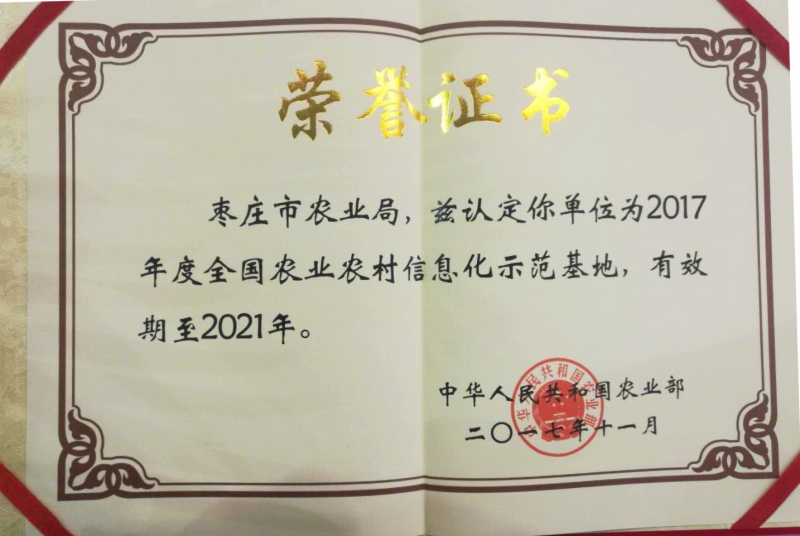 荣誉证书
枣庄市农业局，兹认定你单位为2017
年度全国农业农村信息化示范基地，有效
期至2021年。
中华人民共和国农业部
二〇一七年十一月
中华人民共和国农业部